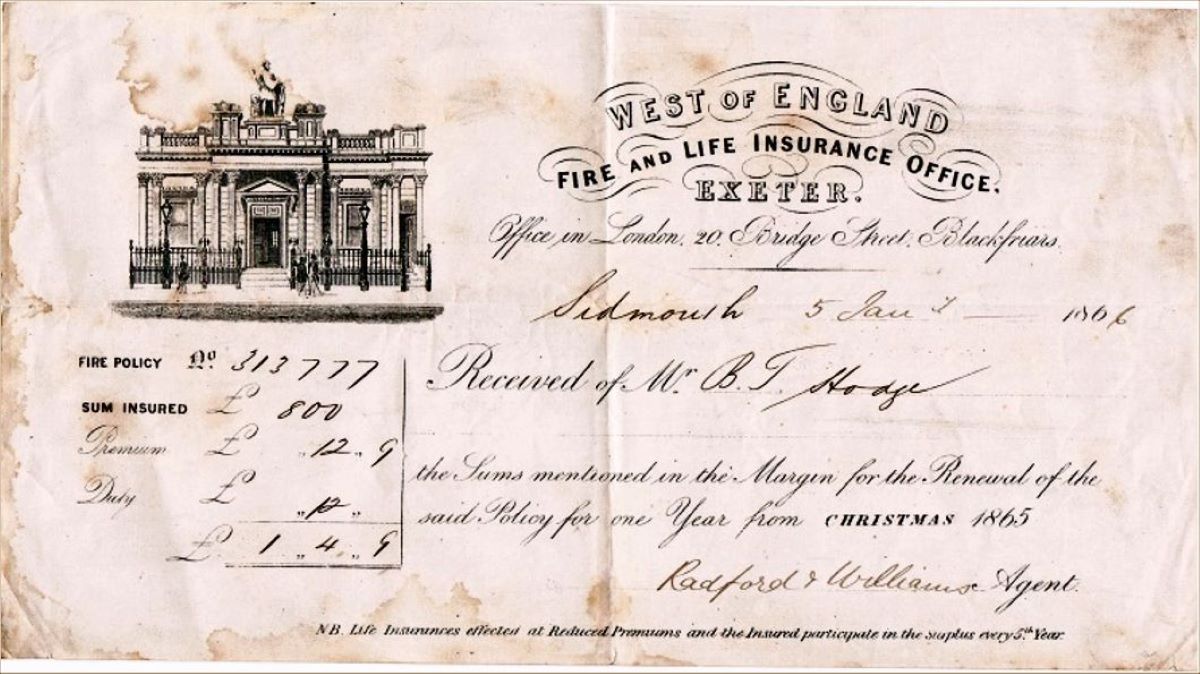 WEST OF ENGLAND
FIRE AND LIFE INSURANCE OFFICE.
EXETER.
Office in London, 20, Bridge Street, Blackfriars.
Sidmouth 5 Jany 1866
FIRE POLICY No. 313777
SUM INSURED £ 800
Premium £ „ 12 „ 9
Duty £ „ 12 „
£ 1 „ 4 „ 9
Received of Mr. B. T. Hodge
the Sums mentioned in the Margin for the Renewal of the
said Policy for one Year from CHRISTMAS 1865
Radford & Williams Agent.
NB. Life Insurances effected at Reduced Premiums and the Insured participate in the surplus every 5th Year.